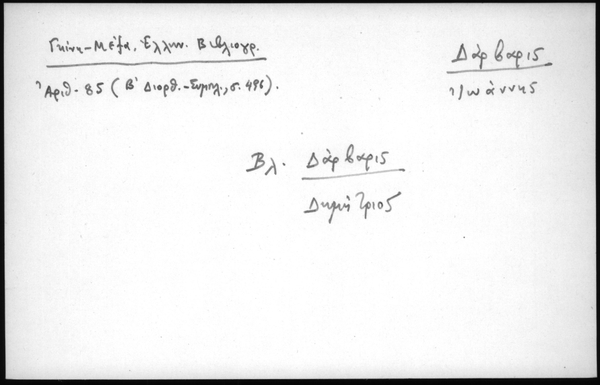 Γκίνη-Μέξα, Ἑλλην. Βιβλιογρ.
Ἀριθ. 85 (Β' Διορθ.-Συμπλ., σ. 496).
Δάρβαρις
Ἰωάννης
Βλ. Δάρβαρις
Δημήτριος